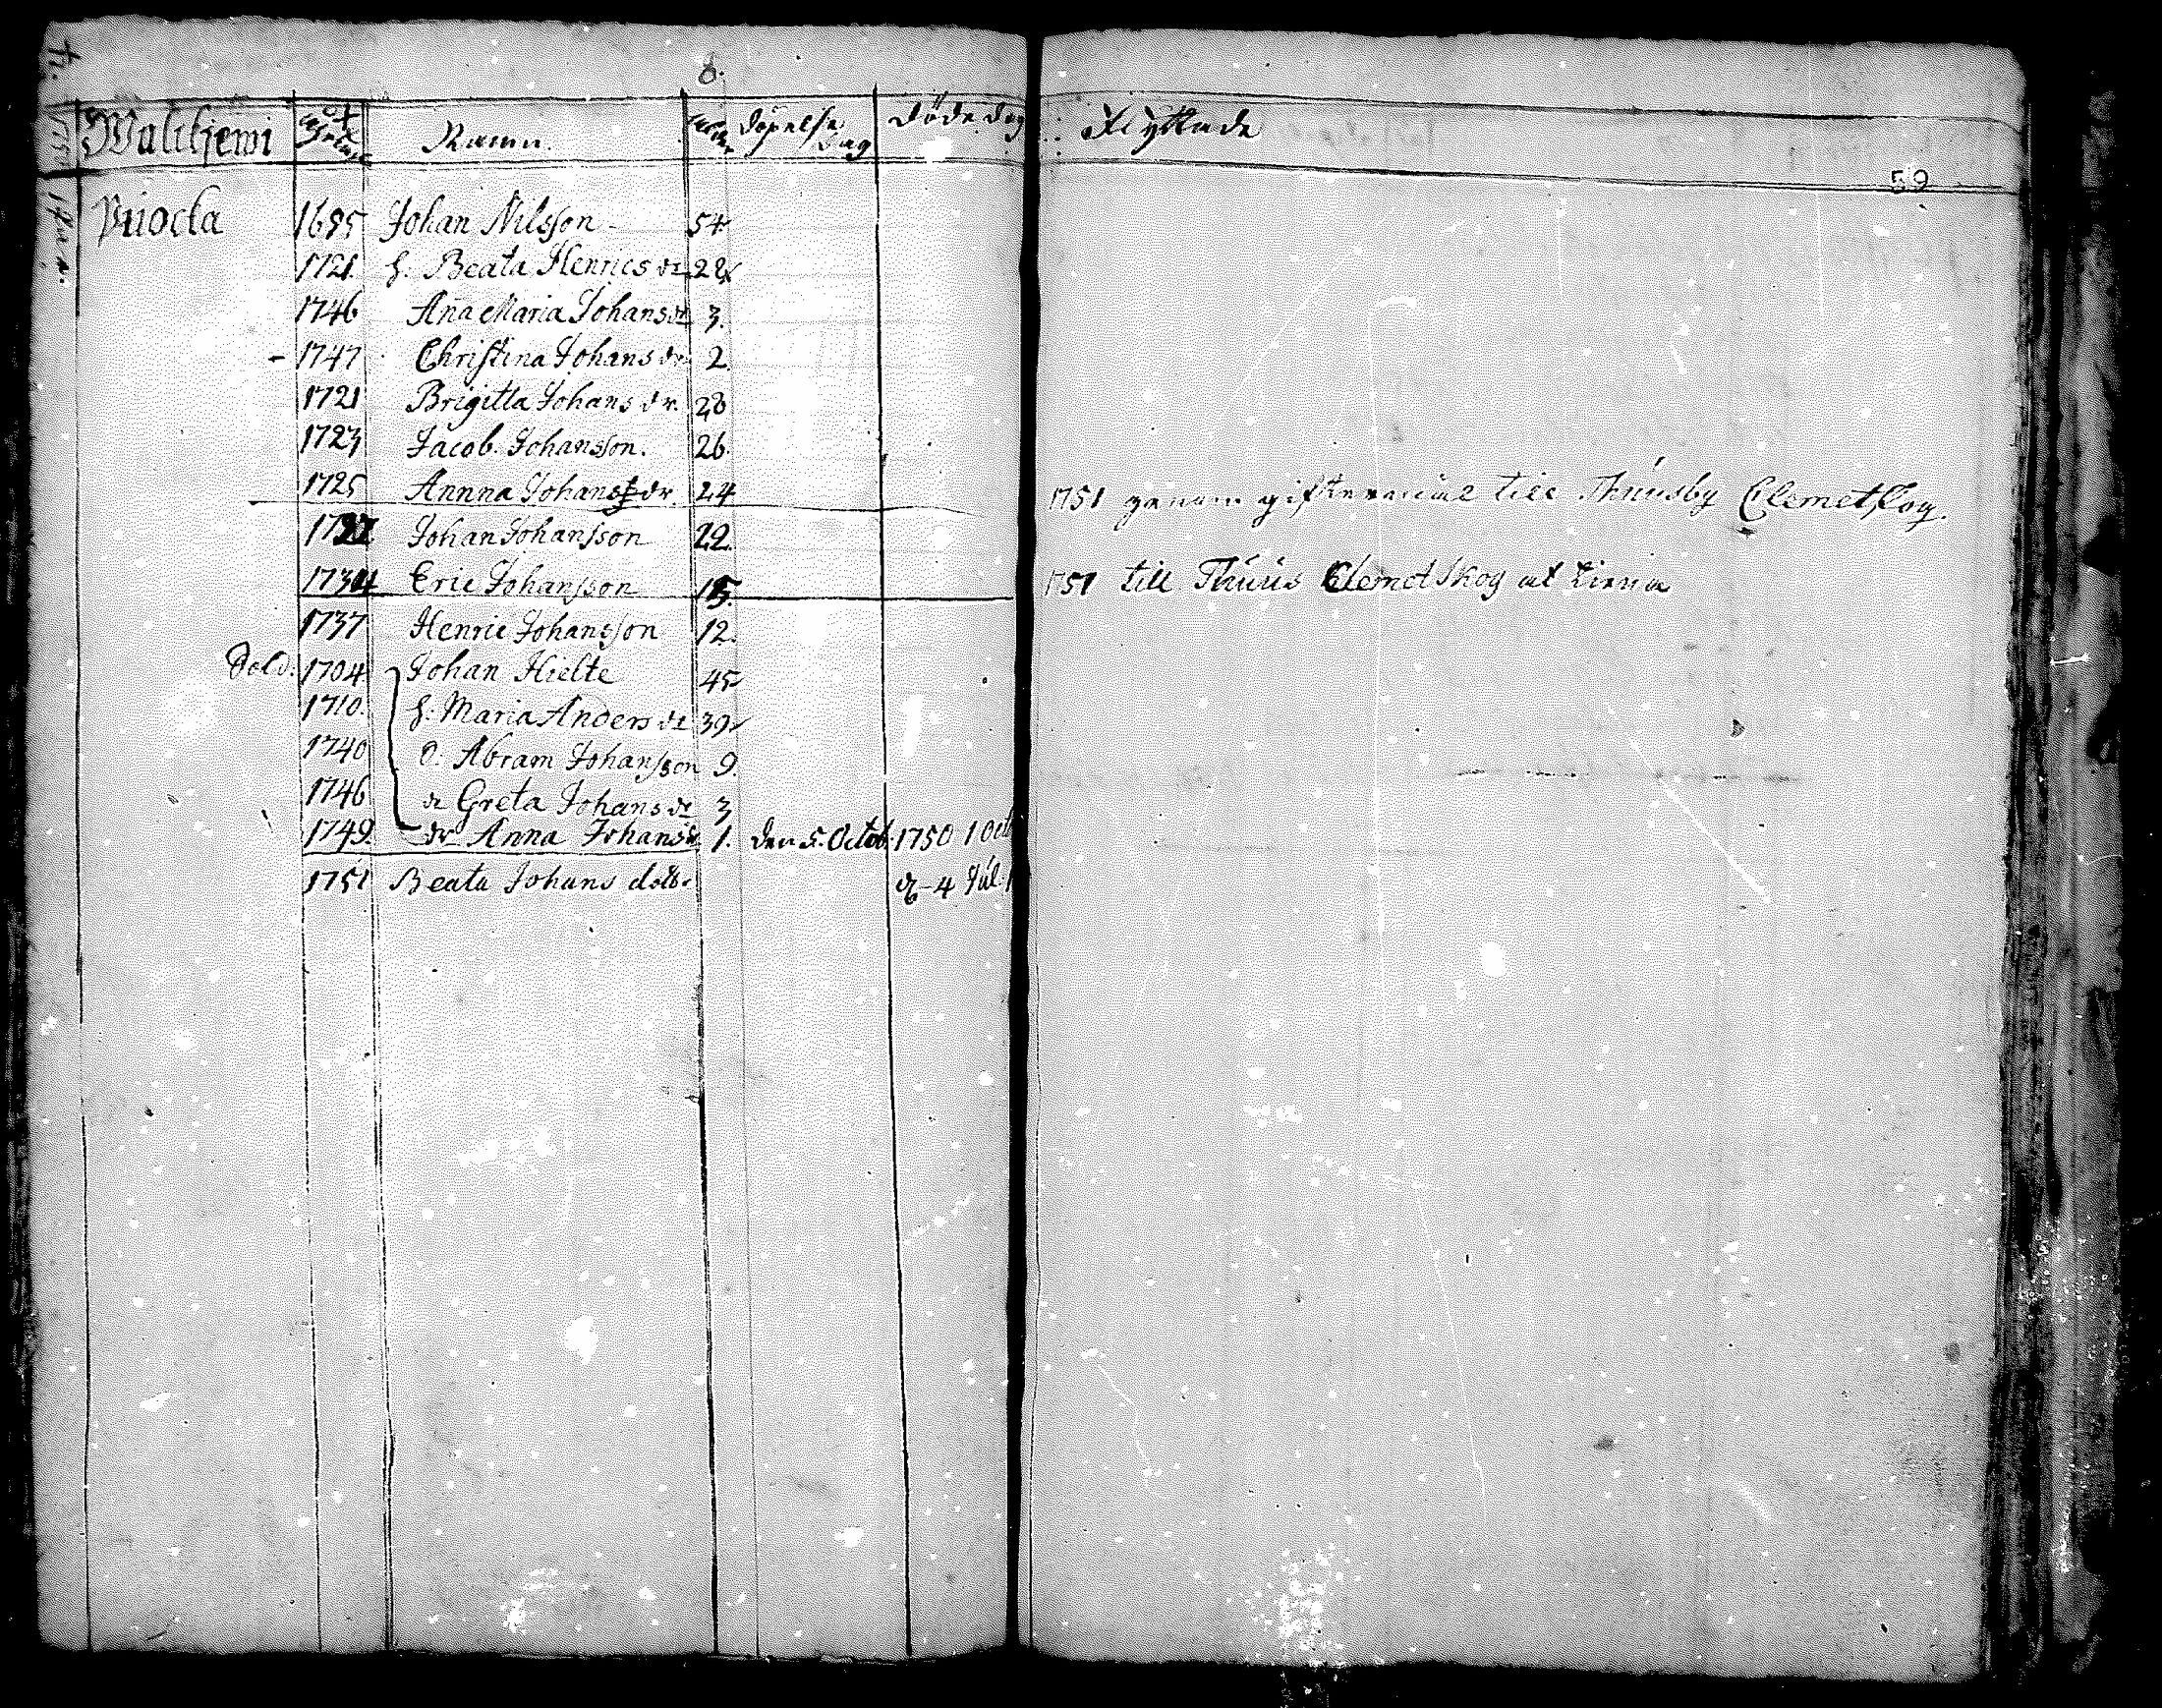 8.
Walkjerwi Namn Döpelse dag Döde dag Flyttade
59
Vuocta 1695 Johan Nilsson 54
1721 h. Beata Henrics dr 28
1746 Aña Maria Johans dr 3.
- 1747 Christina Johans dr 2.
1721 Brigitta Johans dr. 28
1723 Jacob Johansson. 26.
1725 Annna Johans dr 24 1751 genom giftermål till Thuusby Clemetskog.
1727 Johan Johansson 22.
1734 Eric Johansson 15. 1751 till Thuus Clemetskog at tiena
1737 Henric Johansson 12.
Sold: 1704 Johan Hielte 45
1710. h. Maria Anders dr 39
1740 S. Abram Johansson 9.
1746 dr Greta Johans dr 3
1749. dr Anna Johans dr 1. den 5. Octob. 1750 1 Oct
1751 Beata Johans dott. d. 4 Jul.